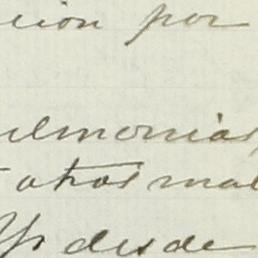 cion por
ulmonias,
otros mal
Yp desde